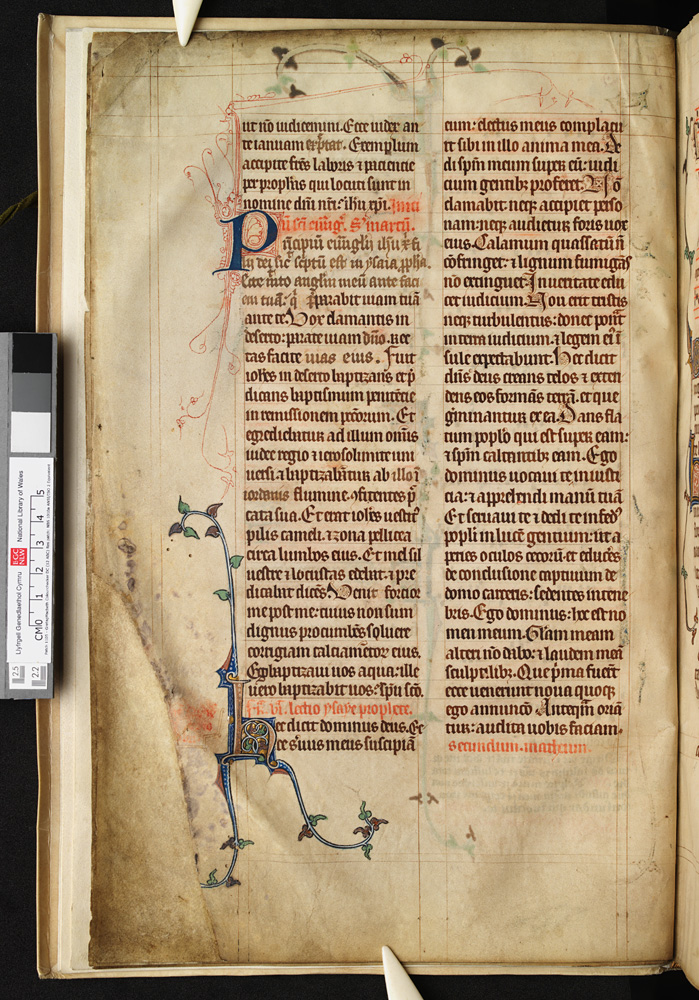 ut nō iudicemini. Ecce iudex an
te ianuam exp̄tat. Exemplum
accipite fr̄es laboris ⁊ paciencie
per prophās qui locuti sunt in
nomine dn̄i nr̄i: ih̄u xp̄i.
sc̄d̄m marcū.
Pn̄cipiū euuāgl̄ij ih̄u xp̄i fi
lij dei sic̄ sc̄ptū est in ysaia ꝓpha.
Ecce mitto angl̄m meū ante faci
em tuā: q̄ p̄parabit uiam tuā
ante te. Vox clamantis in
deserto: parate uiam dn̄o. rec
tas facite uias eius. Fuit
ioh̄es in deserto baptizans et p̄
dicans baptismum penitēcie
in remissionem pc̄corum. Et
egrediebatur ad illum om̄is
iudee regio ⁊ ierosolimite uni
uersi ⁊ baptizabātur ab illo ī
iordanis flumine. ꝯfitentes p̄c
cata sua. Et erat ioh̄es uestit⁹
pilis cameli. ⁊ zona pellicea
circa lumbos eius. Et mel sil
uestre ⁊ locustas edebat. ⁊ pre
dicabat dicēs. Venit forcior
me post me: cuius non sum
dignus procumbēs soluere
corrigiam calciamētor eius.
Ego baptizaui uos aqua: ille
uero baptizabit uos: sp̄u sc̄o.
lectio ysaye prophete.
Hec dicit dominus deus. Ec
ce s̄uus meus suscipiā
eum: electus meus complacu
it sibi in illo anima mea. De
di sp̄m meum super eū: iudi
cium gentibꝫ proferet. Nō
clamabit: neqꝫ accipiet perso
nam: neqꝫ audietur foris uox
eius. Calamum quassatū n̄
cōfringet: ⁊ lignum fumigās
nō extinguet. In ueritate edu
cet iudicium. Non erit tristis
neqꝫ turbulentus: donec ponat
in terra iudicium. ⁊ legem ei⁹ ī
sule expectabunt. Hec dicit
dn̄s deus creans celos ⁊ exten
dens eos formās terrā. et que
ḡminantur ex ea. Dans fla
tum popl̄o qui est super eam:
⁊ sp̄m calcantibꝫ eam. Ego
dominus uocaui te in iusti
cia: ⁊ apprehendi manū tuā
Et seruaui te ⁊ dedi te in fed⁹
popl̄i in lucē gentium: ut a
peries oculos cecorū et educēs
de conclusione captiuum de
domo carceris: sedentes in tene
bris. Ego dominus: hoc est no
men meum. Gl̄am meam
alteri nō dabo: ⁊ laudem meā
sculptilibꝫ. Que p̄ma fuer̄t
ecce uenerunt noua quoqꝫ
ego annuncio. Anteqꝫ oriā
tur: audita uobis faciam.
secundum matheum.
Llyfrgell Genedlaethol Cymru National Library of Wales
LLGC NLW
CM 0 1 2 3 4 5
2.5 2.2